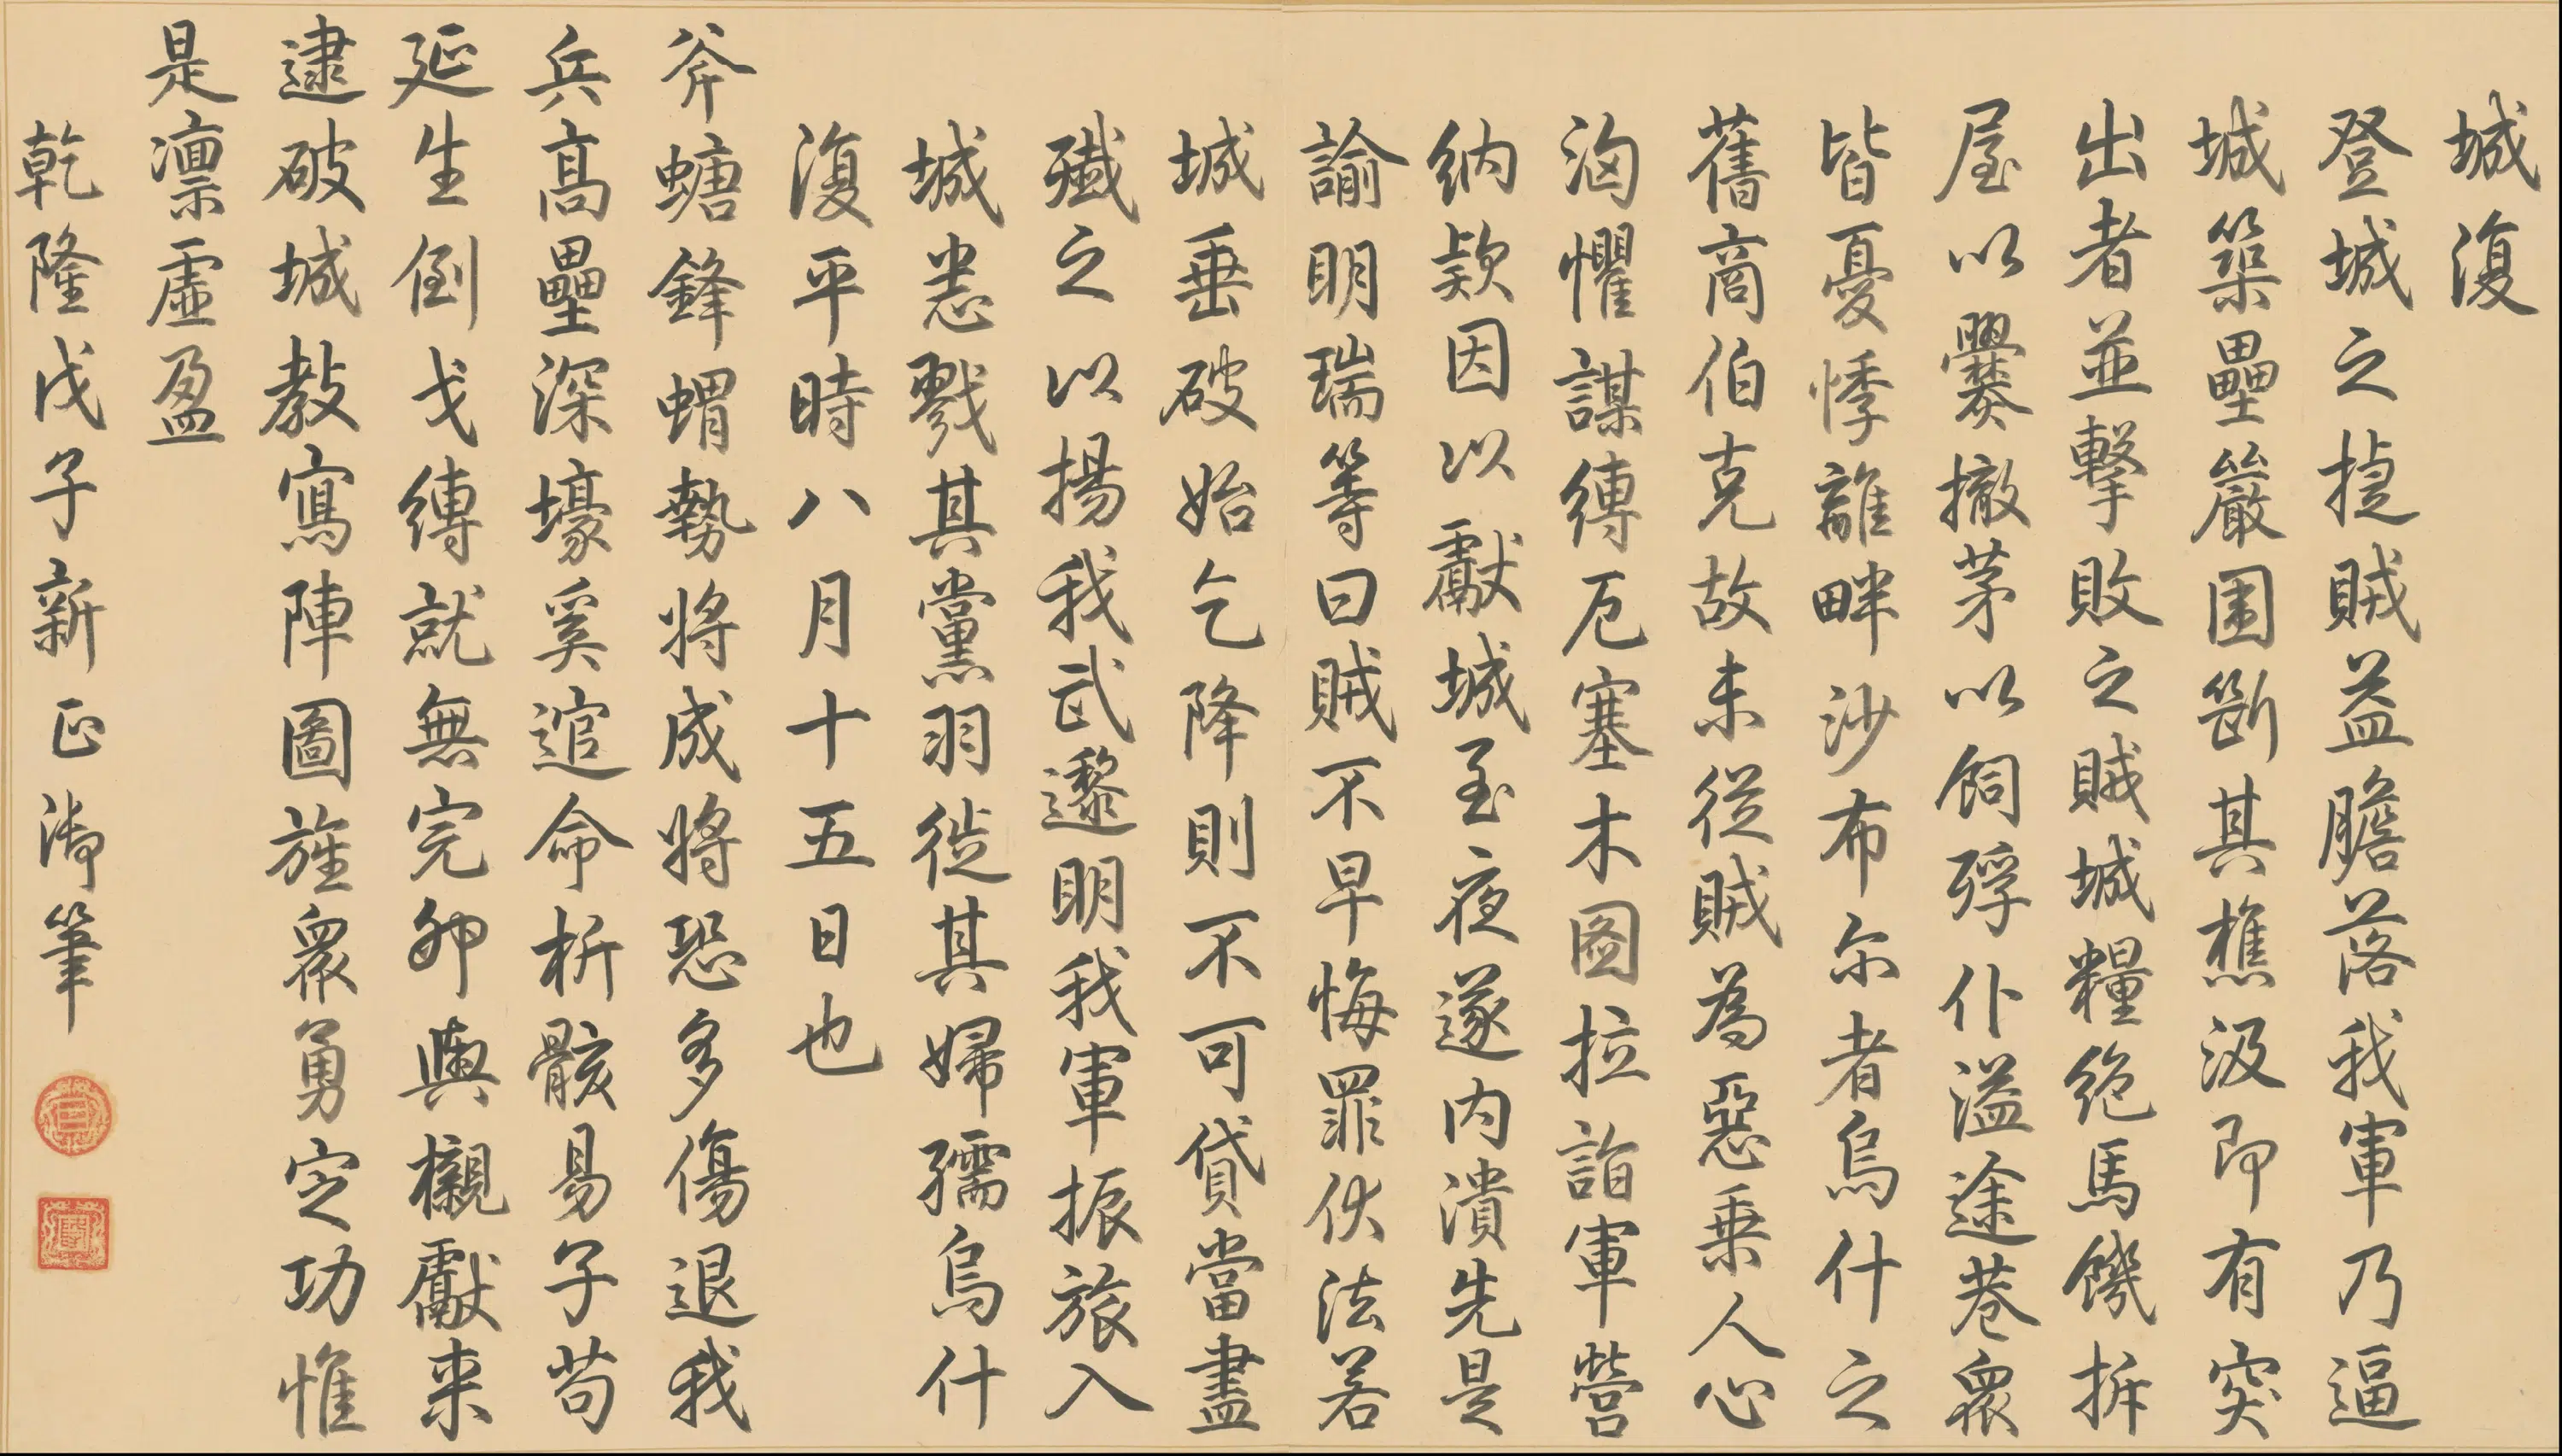 城復
登城之捷賊益膽落我軍乃逼
城築壘嚴圍斷其樵汲即有突
出者並擊敗之賊城糧絶馬饑拆
屋以爨撤茅以飼殍仆溢途巷衆
皆憂悸離畔沙布尔者烏什之
舊啇伯克故未從賊為惡乗人心
洶懼謀縛厄塞木圖拉詣軍營
納欵因以獻城至夜遂内潰先是
諭明瑞等曰賊不早悔罪伏法若
城垂破始乞降則不可貸當盡
殱之以揚我武遲明我軍振旅入
城悉戮其黨羽徙其婦孺烏什
復平時八月十五日也
斧螗鋒蝟勢將成將恐多傷退我
兵高壘深壕奚逭命析骸易子苟
延生倒戈縛就無完卵輿櫬獻来
逮破城教寫陣圖旌衆勇定功惟
是凛虛盈
乾隆戊子新正御筆